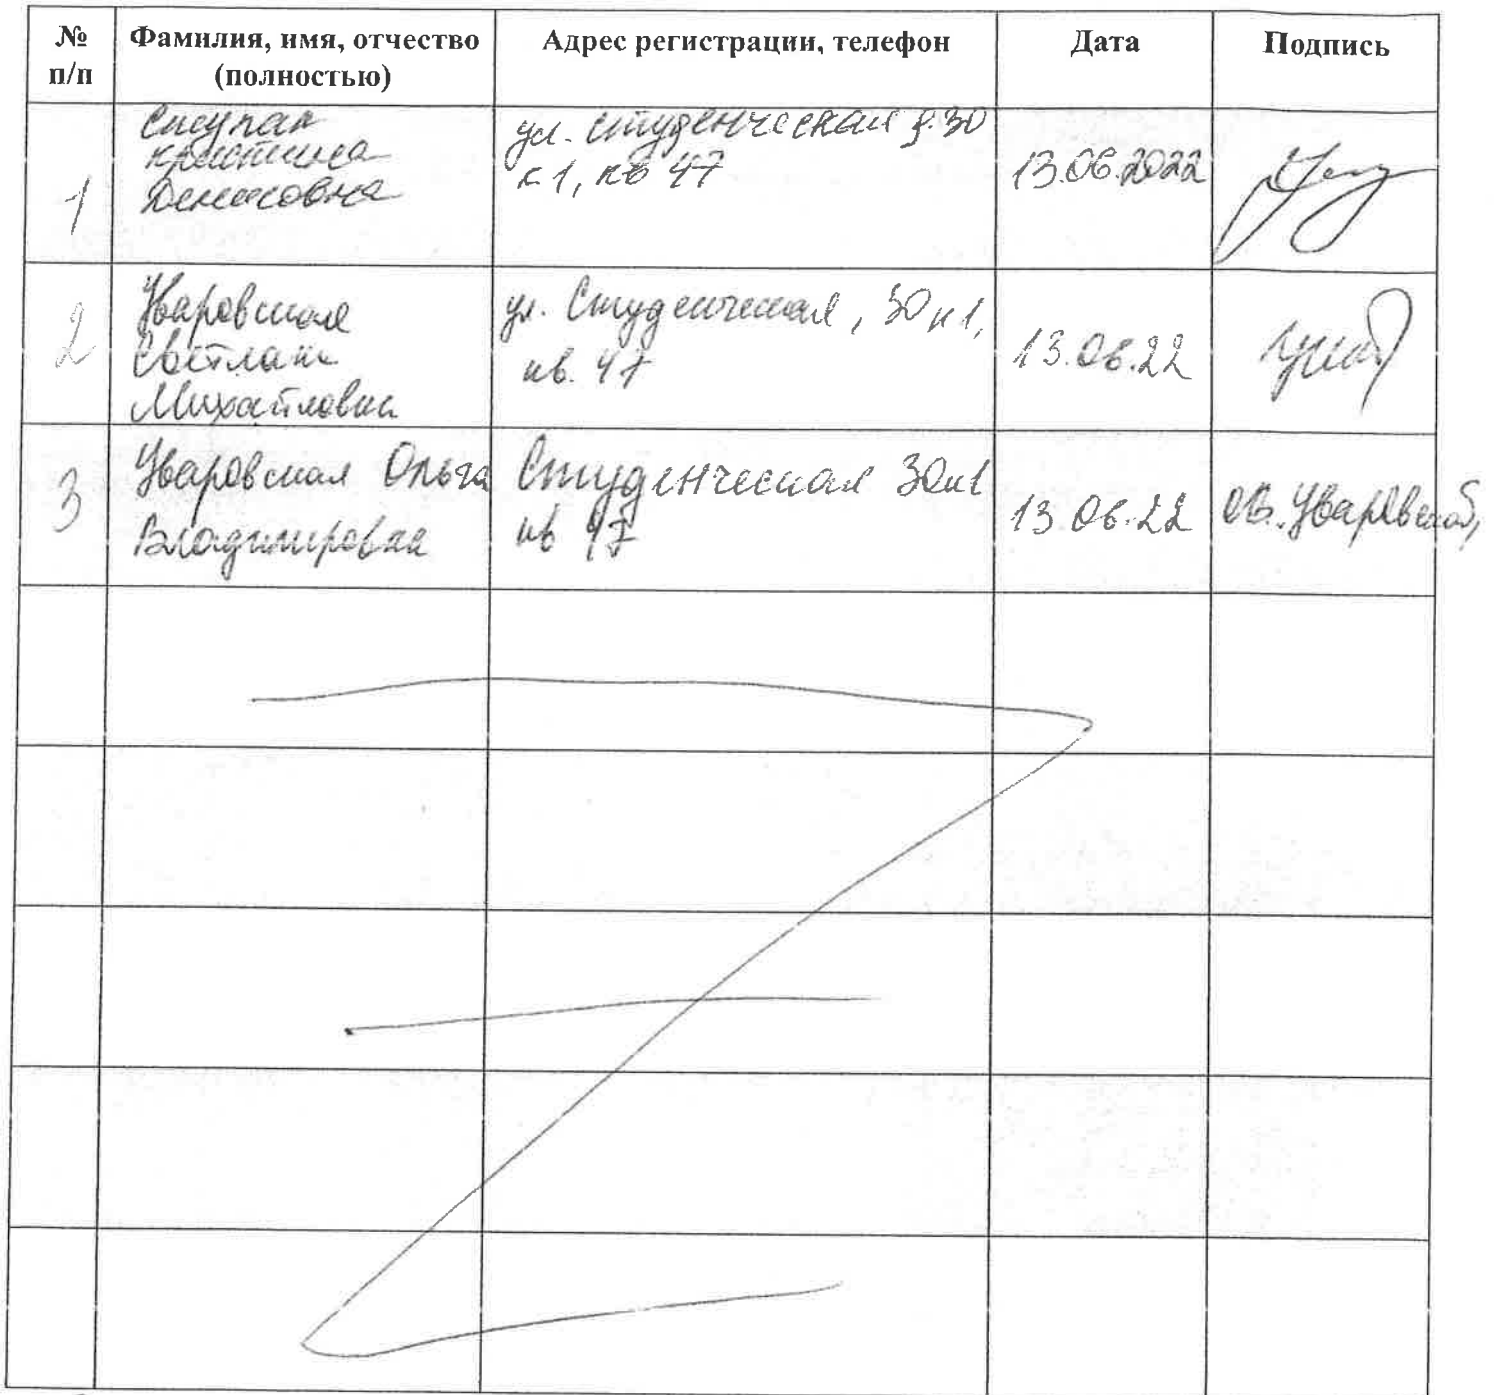 № п/п
Фамилия, имя, отчество (полностью)
Адрес регистрации, телефон
Дата
Подпись
1
Ступак
Кристина
Денисовна
ул. Студенческая д.30
к1, кв 47
13.06.2022
2
Уваровская
Светлана
Михайловна
ул. Студенческая, 30к1,
кв. 47
13.06.22
3
Уваровская Ольга
Владимировна
Студенческая 30к1
кв 47
13.06.22